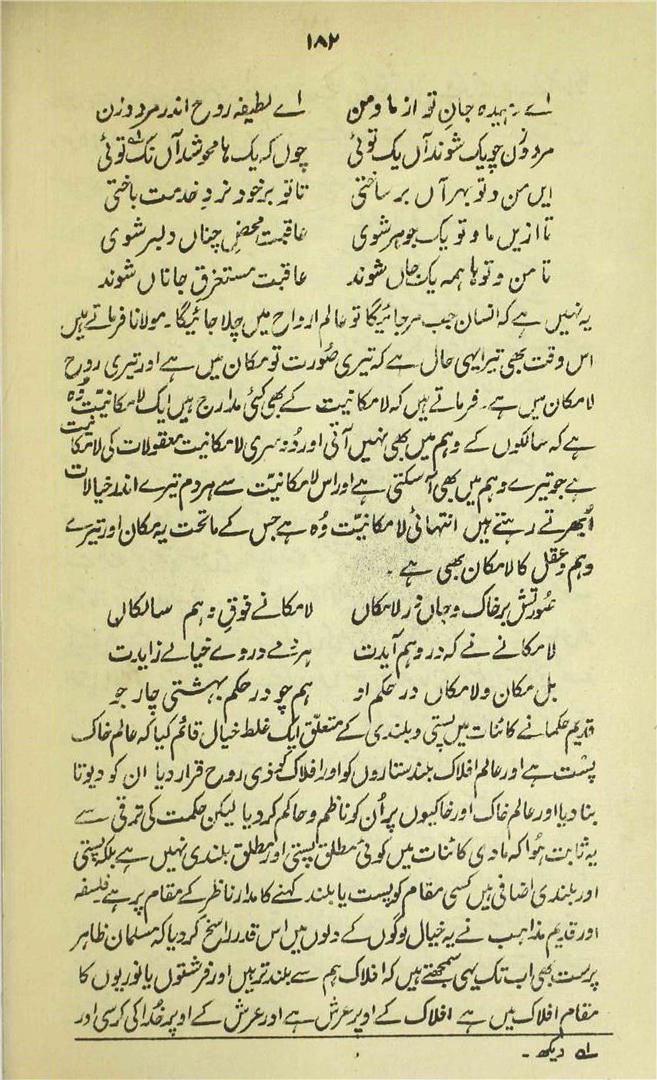 ۱۸۲
اے رہیدہ جانِ تو از ما و من اے لطیفہ روح اندر مرد و زن
مرد و زن چو یک شوند آں یک توئی چوں کہ یک ہا محو شد آں نک ؎۱ توئی
ایں من و تو بہر آں بر ساختی تا تو بر خود نردِ خدمت باختی
تا ازیں ما و تو یک جوہر شوی عاقبت محضِ چناں دلبر شوی
تا من و تو ہا ہمہ یک جاں شوند عاقبت مستغرقِ جاناں شوند
یہ نہیں ہے کہ انسان جب مر جائیگا تو عالمِ ارواح میں چلا جائیگا۔ مولانا فرماتے ہیں
اس وقت بھی تیرا یہی حال ہے کہ تیری صُورت تو مکان میں ہے اور تیری روح
لامکان میں ہے۔ فرماتے ہیں کہ لامکانیت کے بھی کئی مدارج ہیں ایک لامکانیّت وُہ
ہے کہ سالکوں کے وہم میں بھی نہیں آتی اور دُوسری لامکانیت معقولات کی لامکانیت
ہے جو تیرے وہم میں بھی آ سکتی ہے اور اس لامکانیّت سے ہر دم تیرے اندر خیالات
اُبھرتے رہتے ہیں انتہائی لامکانیّت وُہ ہے جس کے ماتحت یہ مکان اور تیرے
وہم و عقل کا لامکان بھی ہے۔
صُورتش بر خاک و جاں در لامکاں لامکانے فوقِ وہم سالکاں
لامکانے نے کہ در وہم آیدت ہر دمے در وے خیالے زایدت
بل مکان و لامکاں در حکم او ہم چو در حکم بہشتی چار جو
قدیم حکما نے کائنات میں پستی و بلندی کے متعلّق ایک غلط خیال قائم کیا کہ عالم خاک
پست ہے اور عالم افلاک بلند ستاروں کو اور افلاک کو ذی روح قرار دیا ان کو دیوتا
بنا دیا اور عالم خاک اور خاکیوں پر اُن کو ناظم و حاکم کر دیا لیکن حکمت کی ترقی سے
یہ ثابت ہُوا کہ مادی کائنات میں کوئی مطلق پستی اور مطلق بلندی نہیں ہے بلکہ پستی
اور بلندی اضافی ہیں کسی مقام کو پست یا بلند کہنے کا مدار ناظر کے مقام پر ہے فلسفہ
اور قدیم مذاہب نے یہ خیال لوگوں کے دلوں میں اس قدر راسخ کر دیا کہ مسلمان ظاہر
پرست بھی اب تک یہی سمجھتے ہیں کہ افلاک ہم سے بلند تر ہیں اور فرشتوں یا نوریوں کا
مقام افلاک میں ہے افلاک کے اوپر عرش ہے اور عرش کے اوپر خُدا کی کرسی اور
؎۱ دیکھ۔